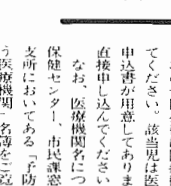 てください。該当児は医
申込書が用意してありま
直接申し込んでください
なお、医療機関名につ
保健センター、市民課窓
支所においてある「予防
う医療機関」名簿をご覧